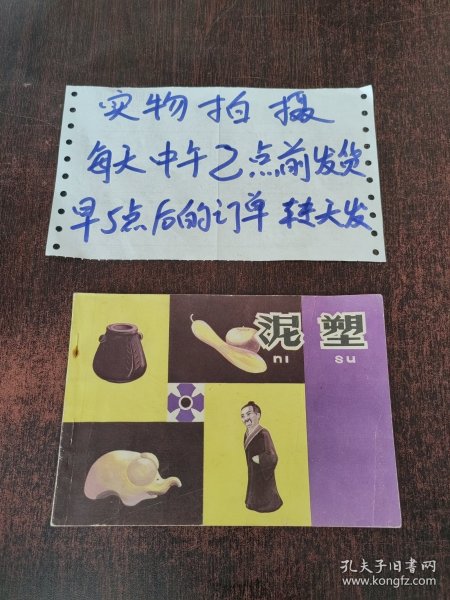 实物拍摄
每天中午2点前发货
早5点后的订单转天发
泥塑
ni su
孔夫子旧书网
www.kongfz.com